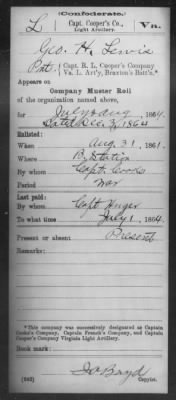 (Confederate.)
L Capt. Cooper's Co., Va.
Light Artillery.
Geo. H. Lewis
Pvt., Capt. R. L. Cooper's Company
Va. L. Art'y, Braxton's Batt'n.*
Appears on
Company Muster Roll
of the organization named above,
for July & Aug, 1864.
Dated Dec 3, 1864
Enlisted:
When Aug 31, 1861.
Where B. Station
By whom Capt. Cooke
Period War
Last paid:
By whom Capt Huger
To what time July 1, 1864.
Present or absent Present
Remarks:
*This company was successively designated as Captain
Cooke's Company, Captain French's Company, and Captain
Cooper's Company Virginia Light Artillery.
Book mark:
(642) Boyd
Copyist.